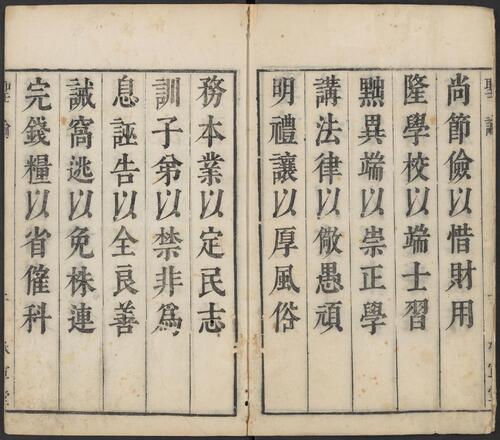 尚節儉以惜財用
隆學校以端士習
黜異端以崇正學
講法律以儆愚頑
明禮讓以厚風俗
務本業以定民志
訓子弟以禁非爲
息誣告以全良善
誡窩逃以免株連
完錢糧以省催科
聖諭